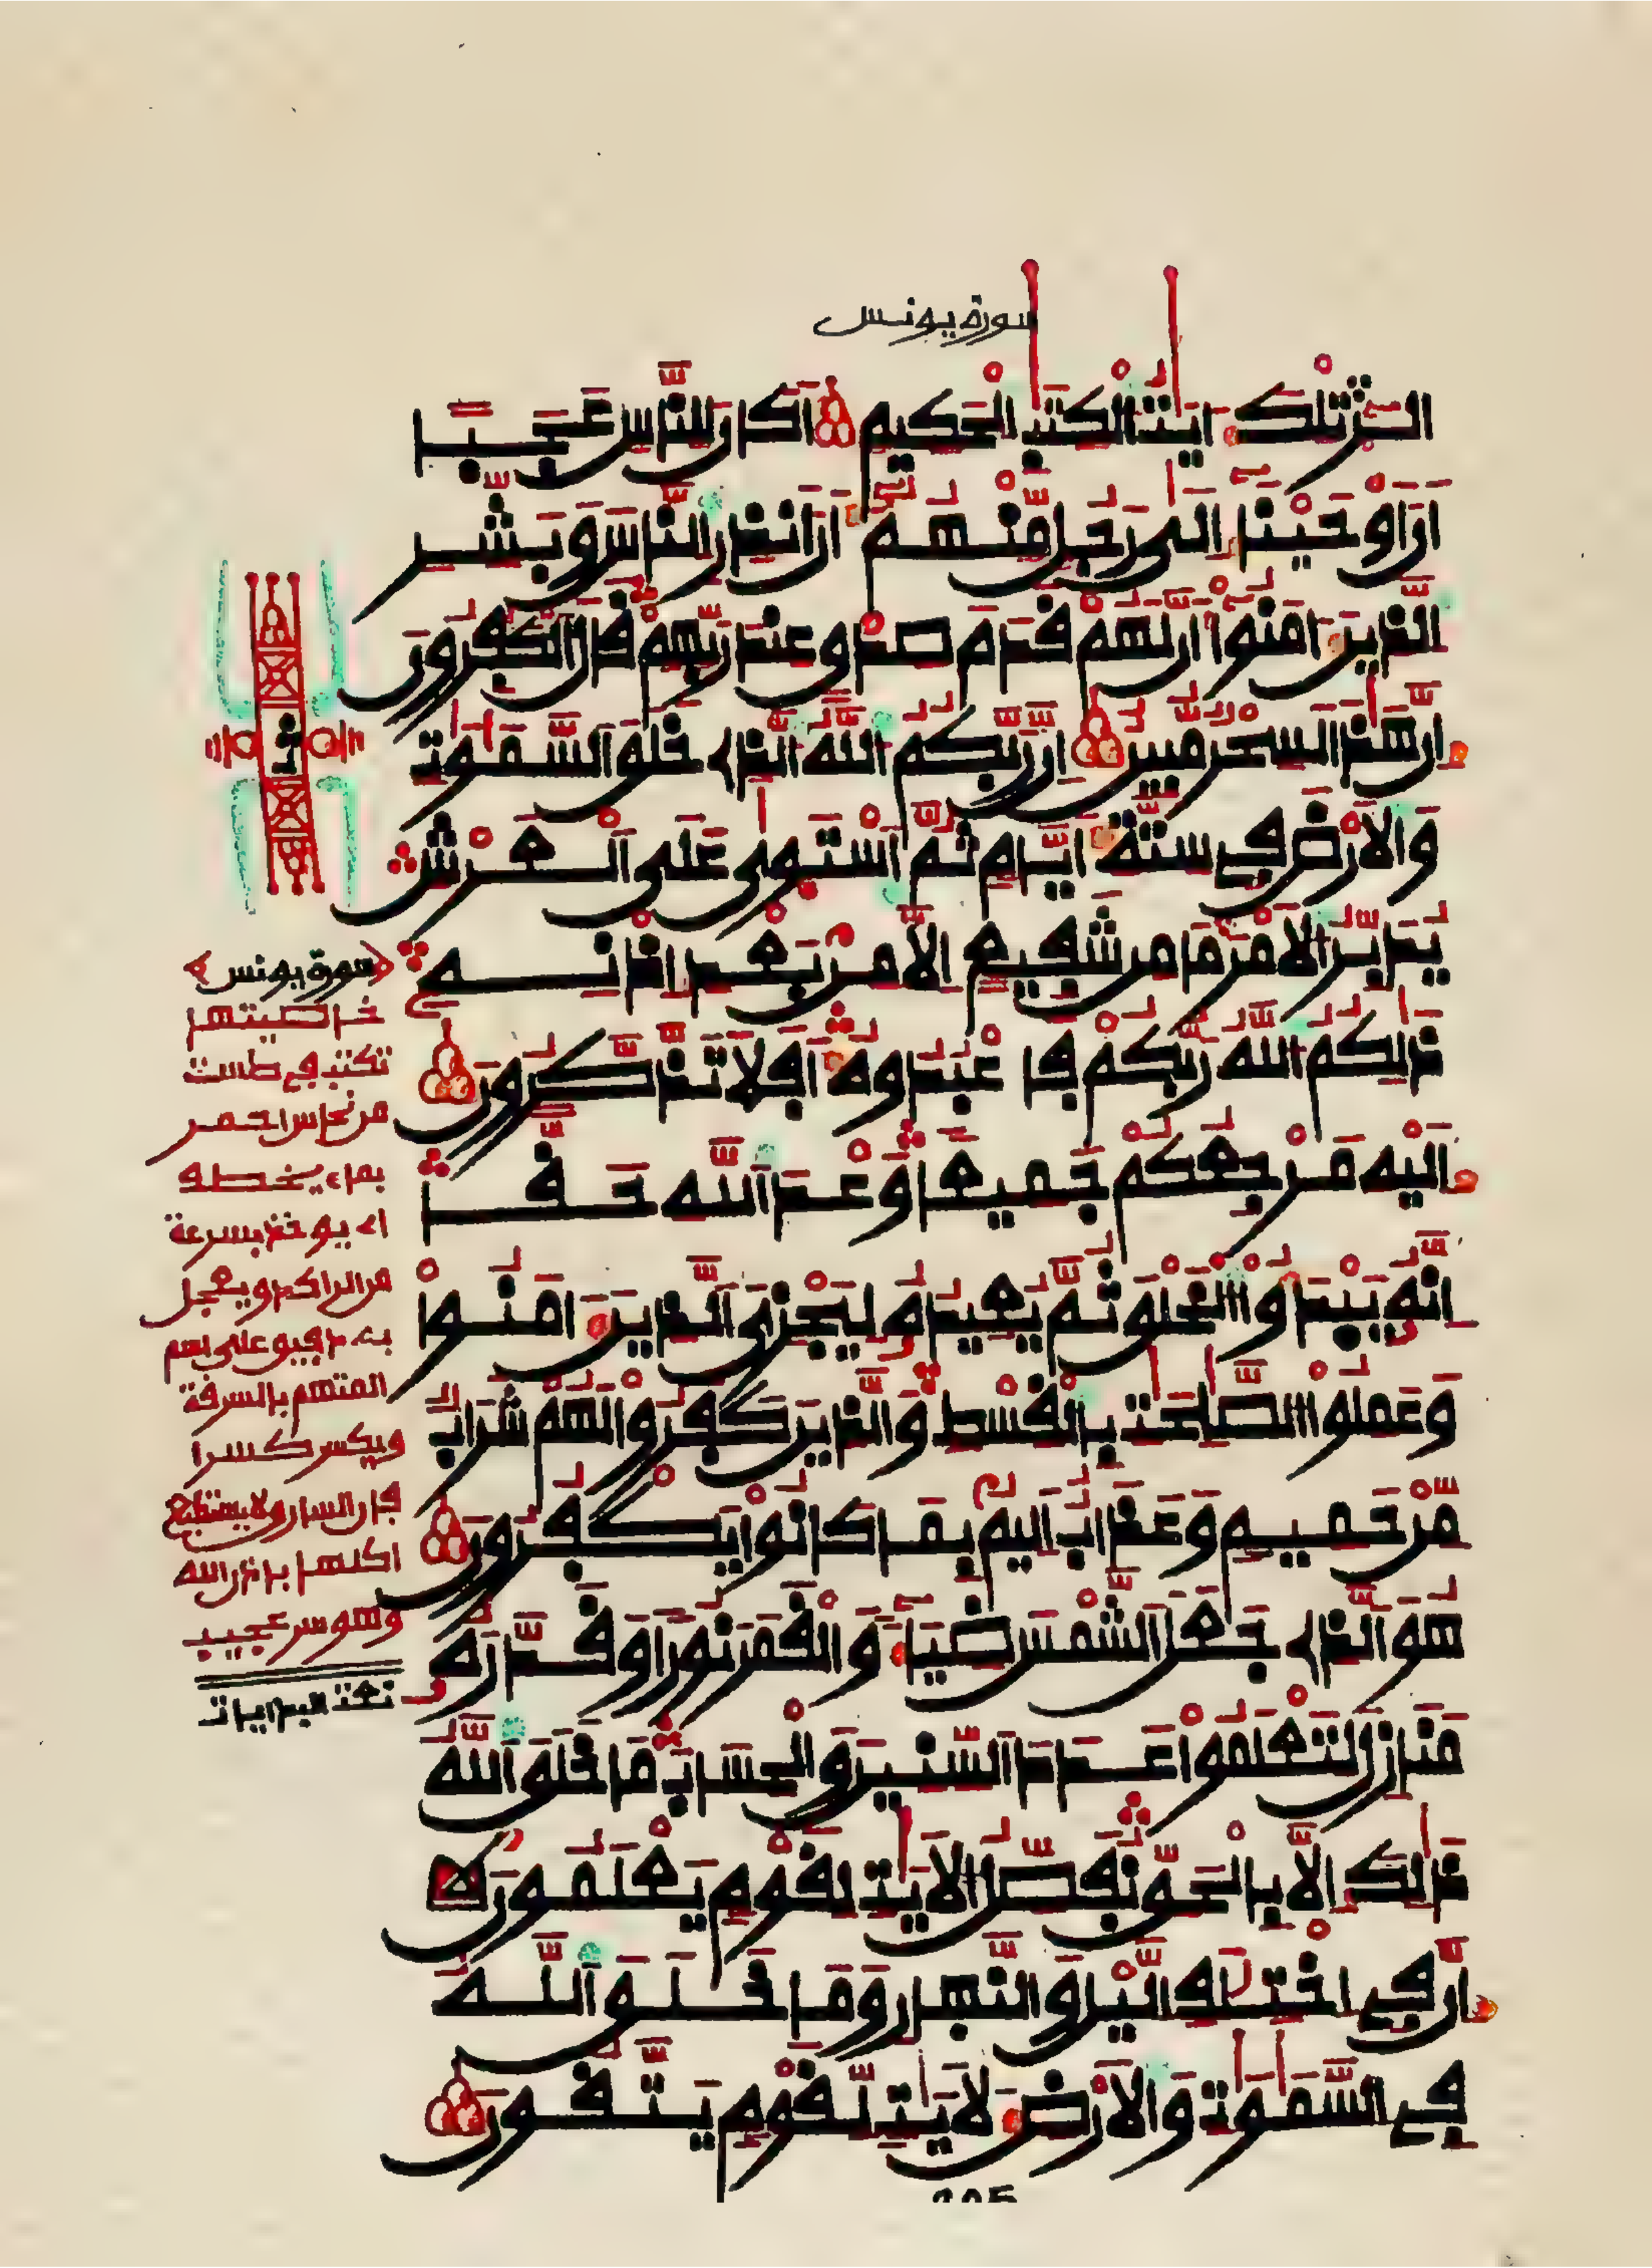 سورة يونس
الٓر تِلْكَ ءَايَٰتُ الْكِتَٰبِ الْحَكِيمِ أَكَانَ لِلنَّاسِ عَجَبًا
أَنَ اَوْحَيْنَآ إِلَىٰ رَجُلٍ مِّنْهُمُۥٓ أَنَ اَنذِرِ النَّاسَ وَبَشِّرِ
الَّذِينَ ءَامَنُوٓا أَنَّ لَهُمْ قَدَمَ صِدْقٍ عِندَ رَبِّهِمْ قَالَ الْكَٰفِرُونَ
إِنَّ هَٰذَا لَسِحْرٌ مُّبِينٌ إِنَّ رَبَّكُمُ اللَّهُ الَّذِي خَلَقَ السَّمَٰوَٰتِ
وَالَارْضَ فِي سِتَّةِ أَيَّامٍ ثُمَّ اَسْتَوَىٰ عَلَى الْعَرْشِ
يُدَبِّرُ الَامْرَ مَا مِن شَفِيعٍ اِلَّا مِنۢ بَعْدِ إِذْنِهِۦ
ذَٰلِكُمُ اللَّهُ رَبُّكُمْ فَاعْبُدُوهُ أَفَلَا تَذَّكَّرُونَ
إِلَيْهِ مَرْجِعُكُمْ جَمِيعًا وَعْدَ اللَّهِ حَقًّا
إِنَّهُۥ يَبْدَؤُا الْخَلْقَ ثُمَّ يُعِيدُهُۥ لِيَجْزِيَ الَّذِينَ ءَامَنُوا
وَعَمِلُوا الصَّٰلِحَٰتِ بِالْقِسْطِ وَالَّذِينَ كَفَرُوا لَهُمْ شَرَابٌ
مِّنْ حَمِيمٍ وَعَذَابٌ اَلِيمٌۢ بِمَا كَانُوا يَكْفُرُونَ
هُوَ الَّذِي جَعَلَ الشَّمْسَ ضِيَآءً وَالْقَمَرَ نُورًا وَقَدَّرَهُۥ
مَنَازِلَ لِتَعْلَمُوا عَدَدَ السِّنِينَ وَالْحِسَابَ مَا خَلَقَ اللَّهُ
ذَٰلِكَ إِلَّا بِالْحَقِّ نُفَصِّلُ الَايَٰتِ لِقَوْمٍ يَعْلَمُونَ
إِنَّ فِي اخْتِلَٰفِ الَّيْلِ وَالنَّهَارِ وَمَا خَلَقَ اللَّهُ
فِي السَّمَٰوَٰتِ وَالَارْضِ لَأَيَٰتٍ لِّقَوْمٍ يَتَّقُونَ
ثمن
سورة يونس
خاصيتها
تكتب في طست
من نحاس احمر
بماء يخطه
اي يوخذ بسرعة
من الراكد ويعجل
به دقيق على اسم
المتهم بالسرقة
ويكسر كسرا
فان السارق لا يستطيع
اكلها باذن الله
وهو سر عجيب